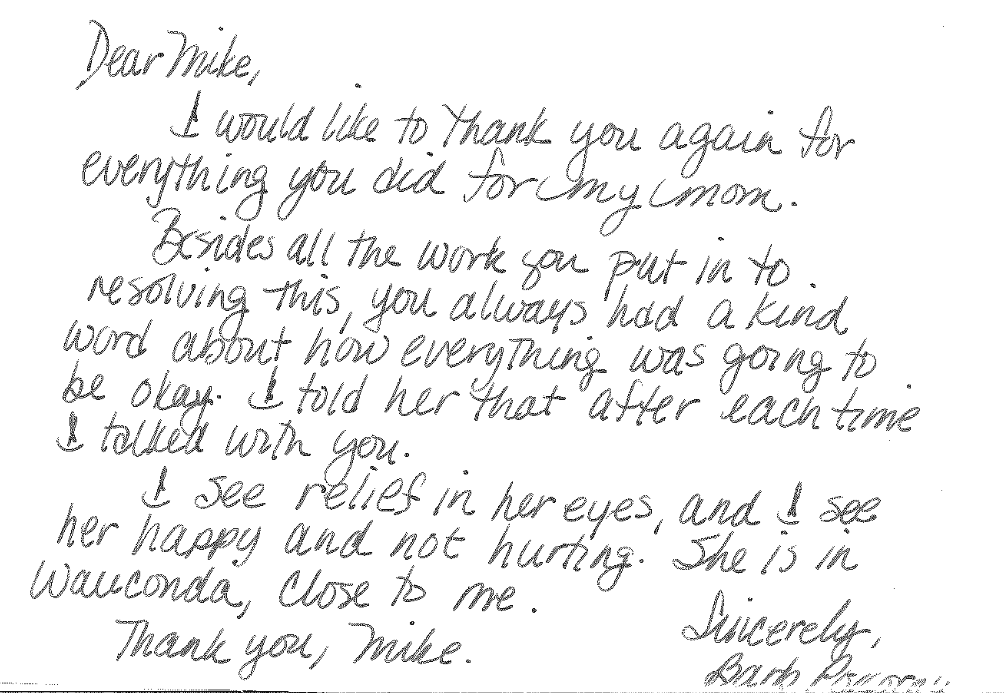 Dear Mike,
I would like to Thank you again for
everything you did for my mom.
Besides all the work you put in to
resolving this, you always had a kind
word about how everything was going to
be okay. I told her that after each time
I talked with you.
I see relief in her eyes, and I see
her happy and not hurting. She is in
Wauconda, close to me.
Thank you, Mike.
Sincerely,
Barb